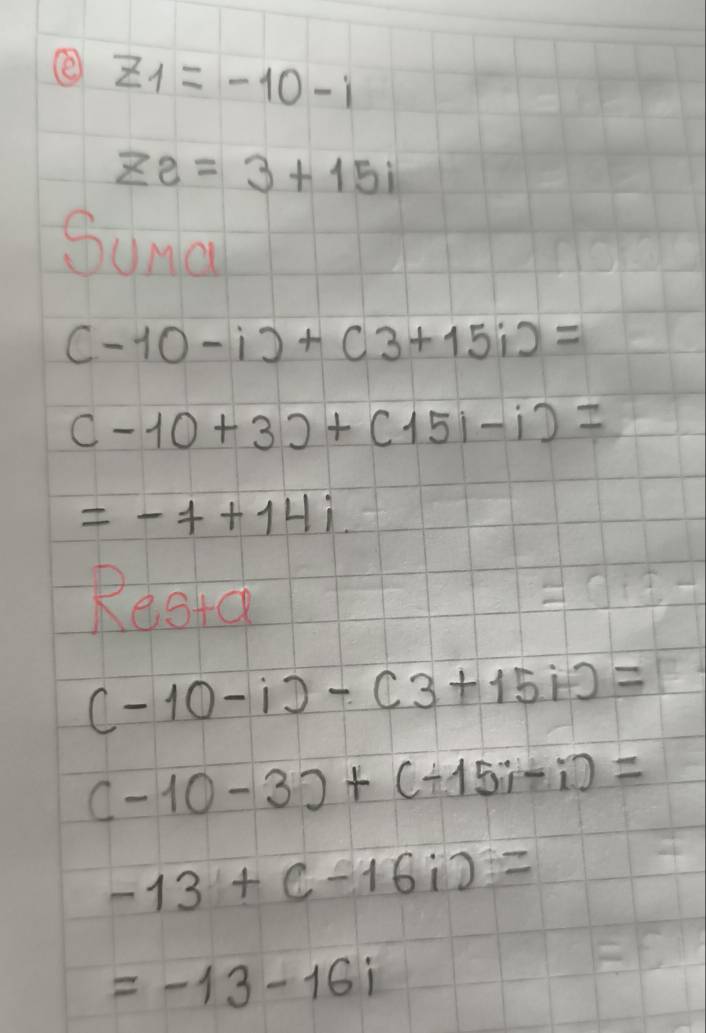 e z1 = -10 - i
z2 = 3 + 15i
Suma
(-10 - i) + (3 + 15i) =
(-10 + 3) + (15i - i) =
= -7 + 14i.
Resta
(-10 - i) - (3 + 15i) =
(-10 - 3) + (-15i - i) =
-13 + (-16i) =
= -13 - 16i